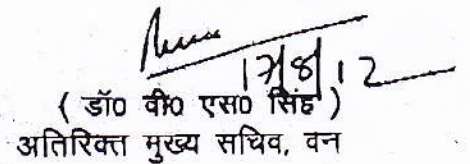 17/8/12
( डॉ0 वी0 एस0 सिंह )
अतिरिक्त मुख्य सचिव, वन